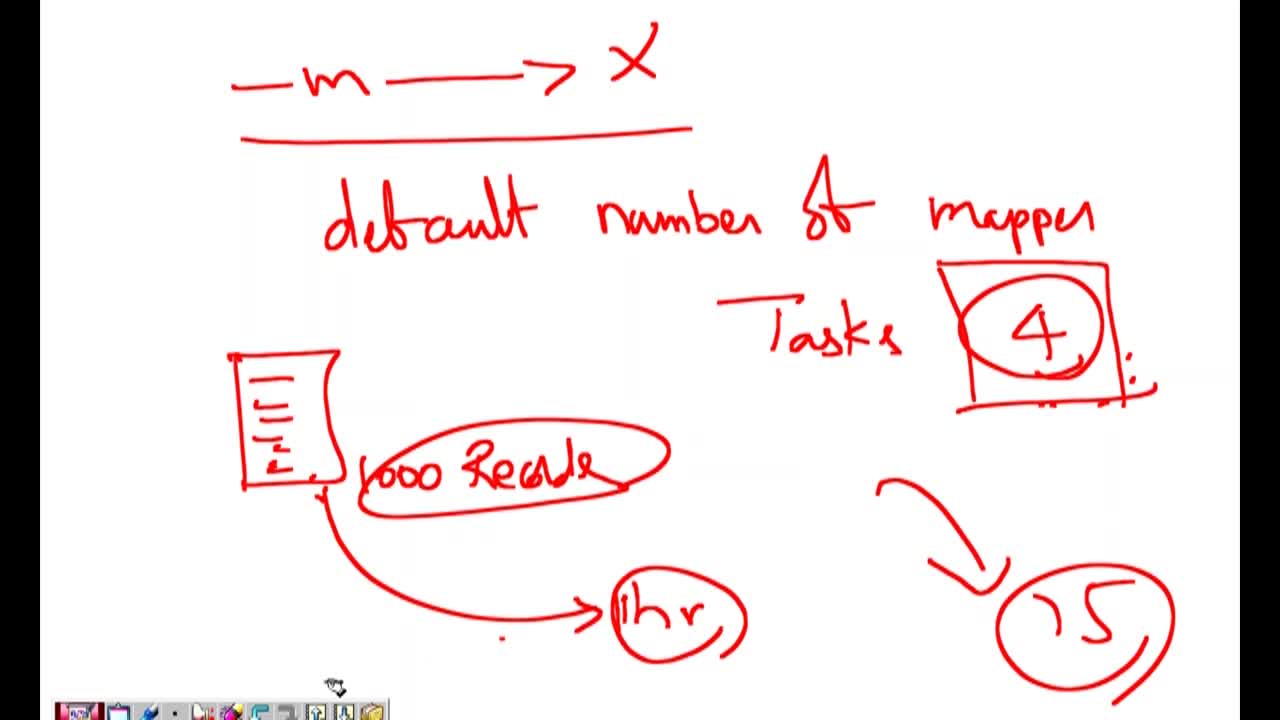 —m ⟶ X
default number of mapper
Tasks 4
1000 Records
1hr
15